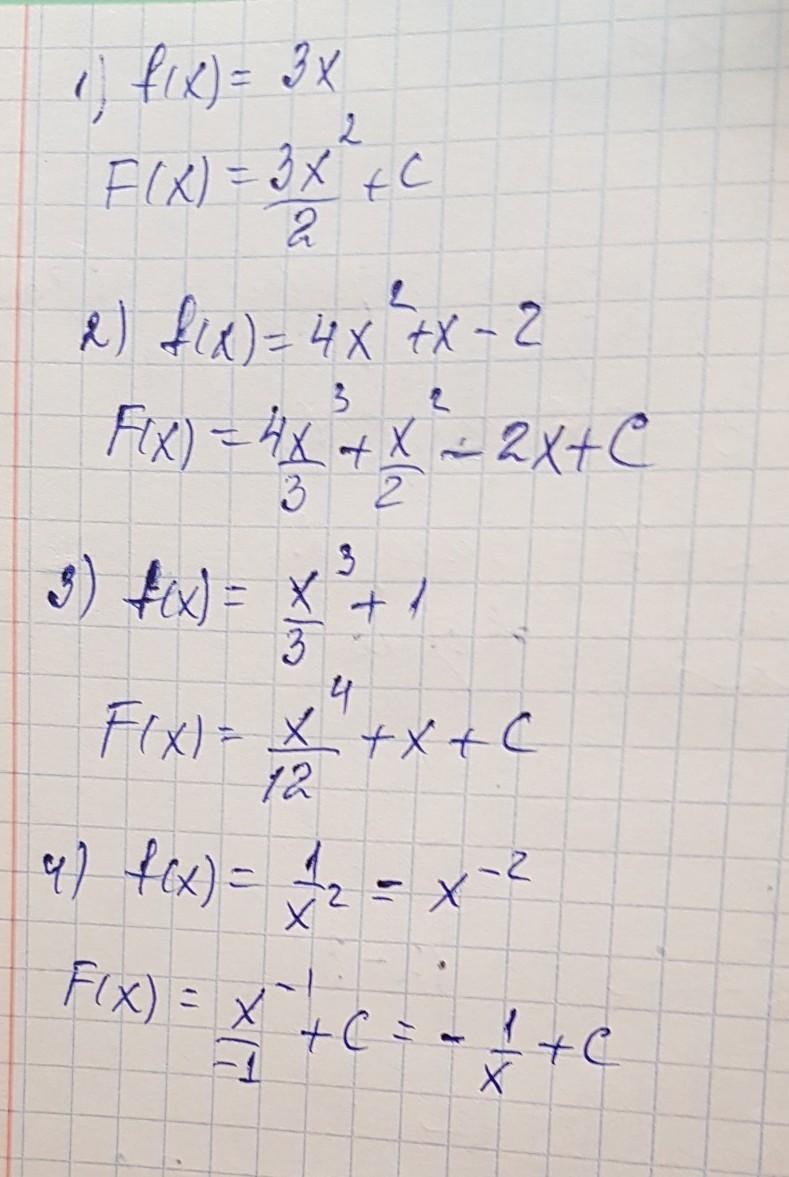 1) f(x) = 3x
F(x) = 3x²/2 + C
2) f(x) = 4x² + x - 2
F(x) = 4x³/3 + x²/2 - 2x + C
3) f(x) = x³/3 + 1
F(x) = x⁴/12 + x + C
4) f(x) = 1/x² = x⁻²
F(x) = x⁻¹/-1 + C = - 1/x + C